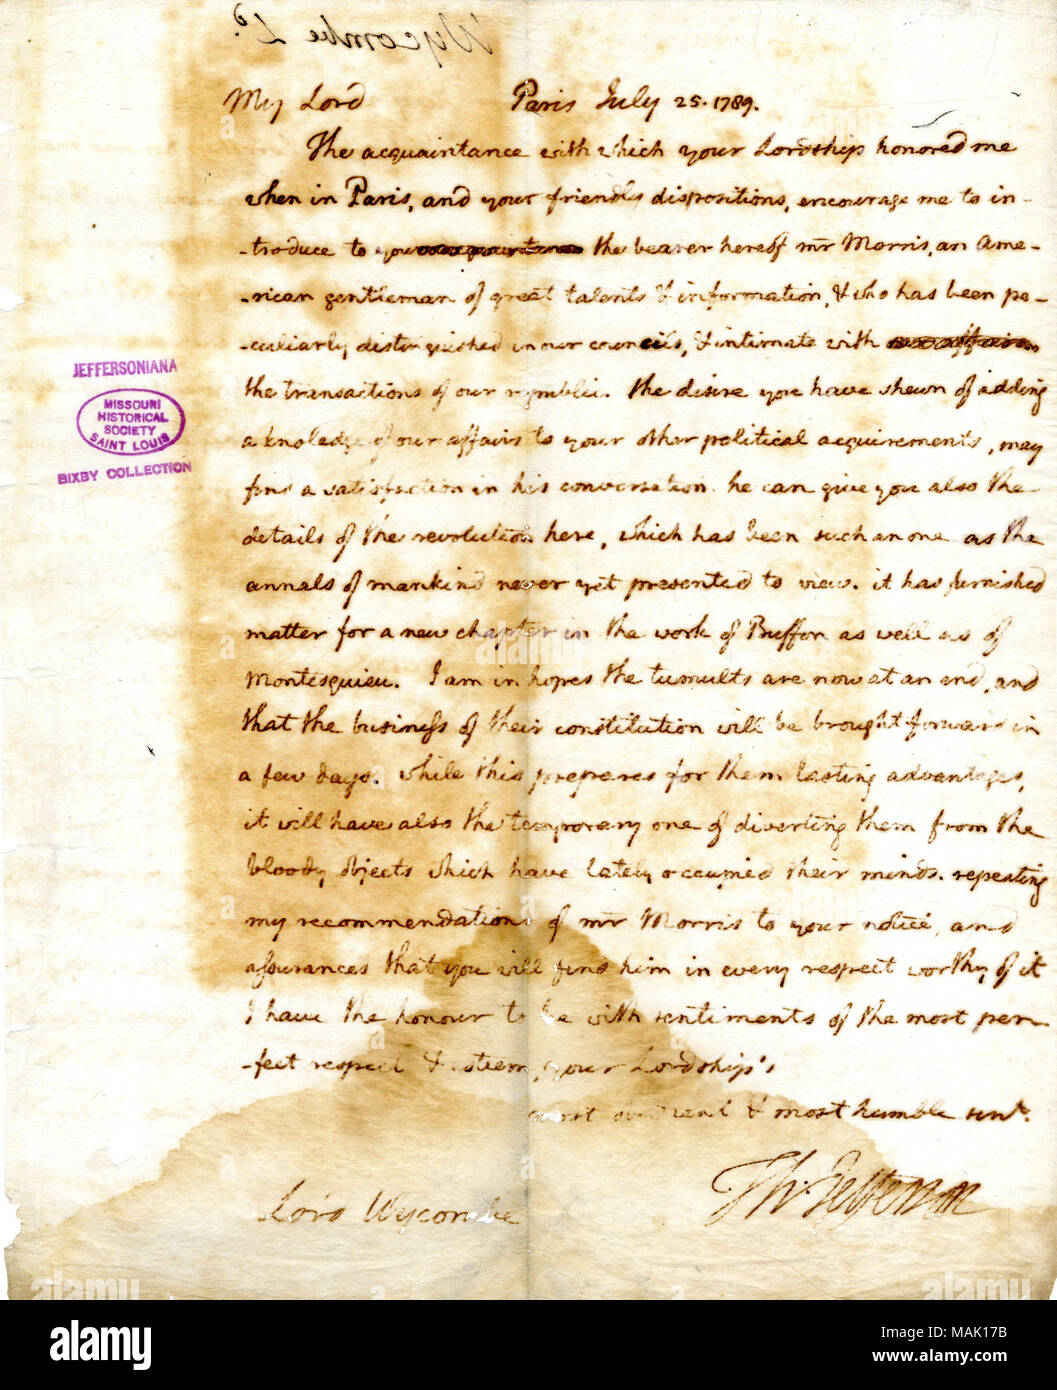 Wycombe Ld.
My Lord Paris July 25. 1789.
The acquaintance with which your Lordship honored me
when in Paris, and your friendly dispositions, encourage me to in-
-troduce to you the bearer hereof mr Morris, an Ame-
-rican gentleman of great talents & information, & who has been pe-
-culiarly distinguished in our councils, & intimate with
the transactions of our republic. the desire you have shewn of adding
a knoledge of our affairs to your other political acquirements, may
find a satisfaction in his conversation. he can give you also the
details of the revolution here, which has been such an one as the
annals of mankind never yet presented to view. it has furnished
matter for a new chapter in the work of Buffon as well as of
Montesquieu. I am in hopes the tumults are now at an end, and
that the business of their constitution will be brought forward in
a few days. while this prepares for them lasting advantages,
it will have also the temporary one of diverting them from the
bloody objects which have lately occupied their minds. repeating
my recommendations of mr Morris to your notice, and
assurances that you will find him in every respect worthy of it
I have the honour to be with sentiments of the most per-
-fect respect & esteem, your Lordship's
most obedient & most humble servt.
Th: Jefferson
Lord Wycombe
JEFFERSONIANA
MISSOURI
HISTORICAL
SOCIETY
SAINT LOUIS
BIXBY COLLECTION
alamy
Image ID: MAK17B
www.alamy.com